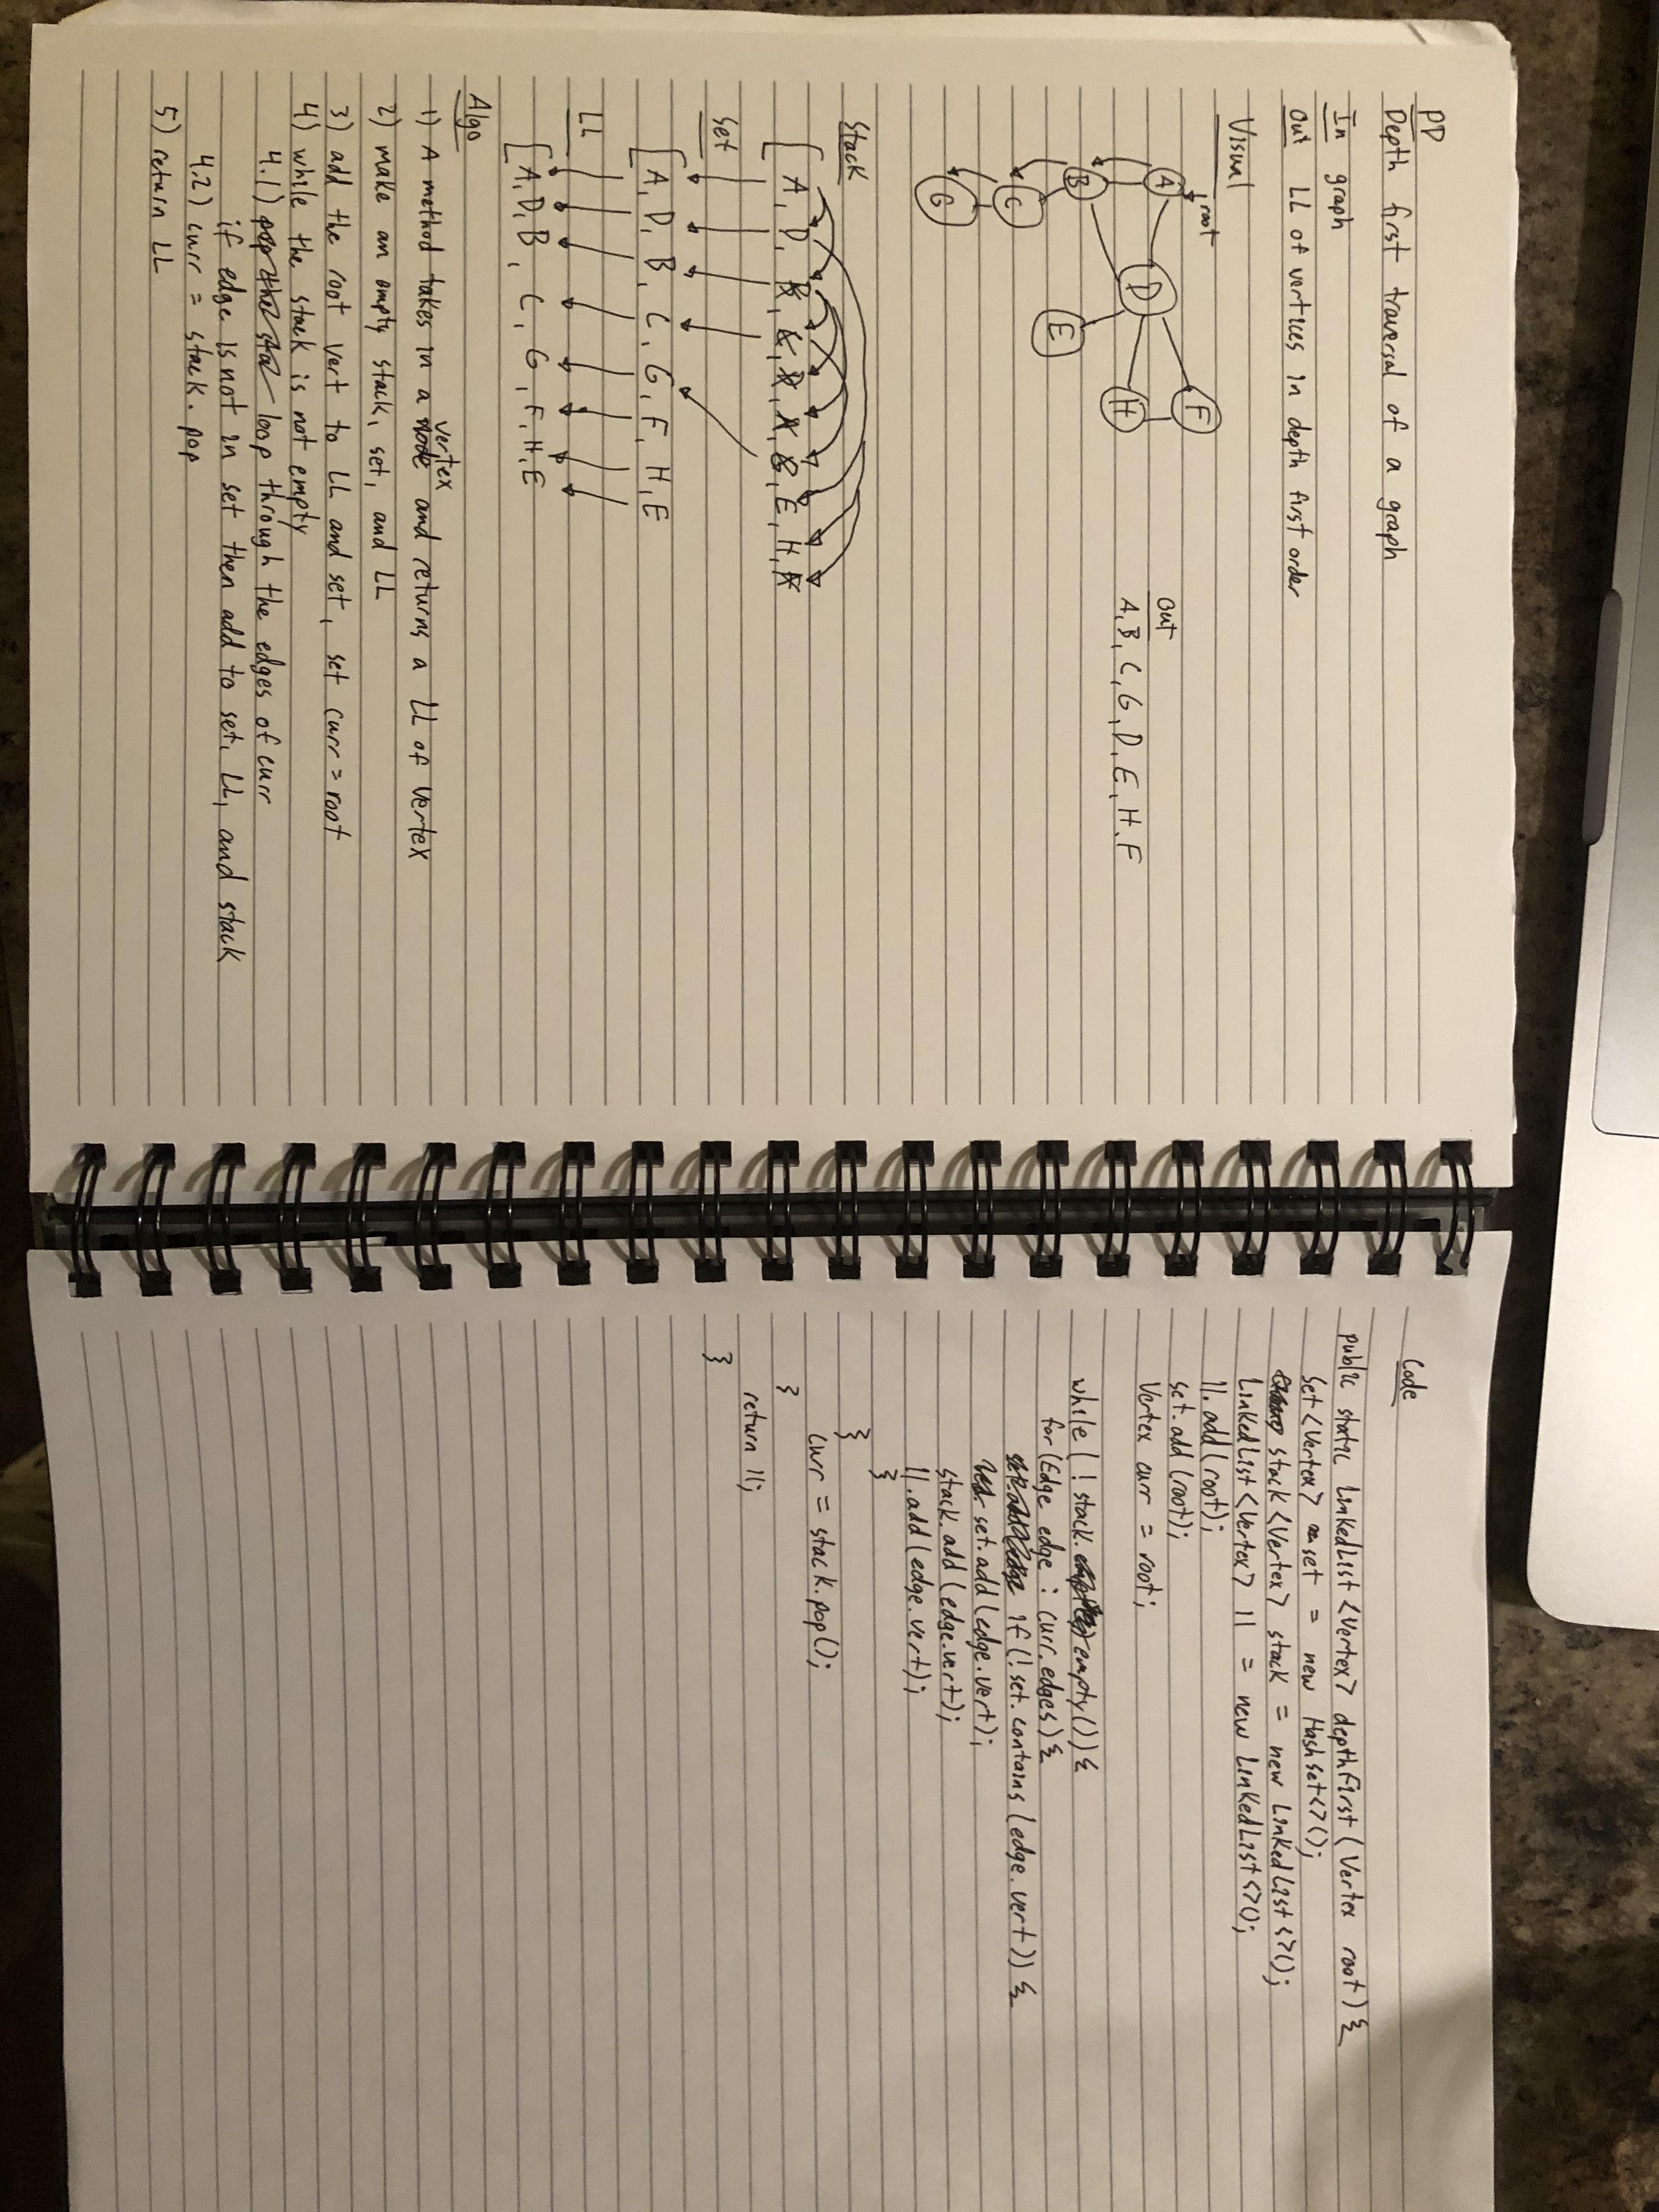 PD
Depth first traversal of a graph
In graph
Out LL of vertices in depth first order
Visual
root
A
B
C
G
D
E
F
H
Out
A, B, C, G, D, E, H, F
Stack
[A, D, B, C, D, A, G, E, H, F
Set
[A, D, B, C, G, F, H, E
LL
[A, D, B, C, G, F, H, E
Algo
1) A method takes in a node vertex and returns a LL of vertex
2) make an empty stack, set, and LL
3) add the root vert to LL and set, set curr = root
4) while the stack is not empty
4.1) pop the sta loop through the edges of curr
if edge is not in set then add to set, LL, and stack
4.2) curr = stack.pop
5) return LL
Code
public static LinkedList<Vertex> depthFirst(Vertex root){
Set<Vertex> set = new HashSet<>();
stack<Vertex> stack = new LinkedList<>();
LinkedList<Vertex> ll = new LinkedList<>();
ll.add(root);
set.add(root);
Vertex curr = root;
while(!stack.empty()){
for(Edge edge : curr.edges){
if(!set.contains(edge.vert)){
set.add(edge.vert);
stack.add(edge.vert);
ll.add(edge.vert);
}
}
curr = stack.pop();
}
return ll;
}